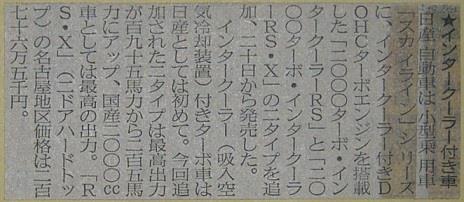 ★インタークーラー付き車
日産自動車は小型乗用車
「スカイライン」シリーズ
に、インタークーラー付きD
OHCターボエンジンを搭載
した「二〇〇〇ターボ・イン
タークーラーRS」と「二〇
〇〇ターボ・インタークーラ
ーRS・X」の二タイプを追
加、二十日から発売した。
インタークーラー（吸入空
気冷却装置）付きターボ車は
日産としては初めて。今回追
加された二タイプは最高出力
が百九十五馬力から二百五馬
力にアップ、国産二〇〇〇cc
車としては最高の出力。「R
S・X」（二ドアハードトッ
プ）の名古屋地区価格は二百
七十六万五千円。